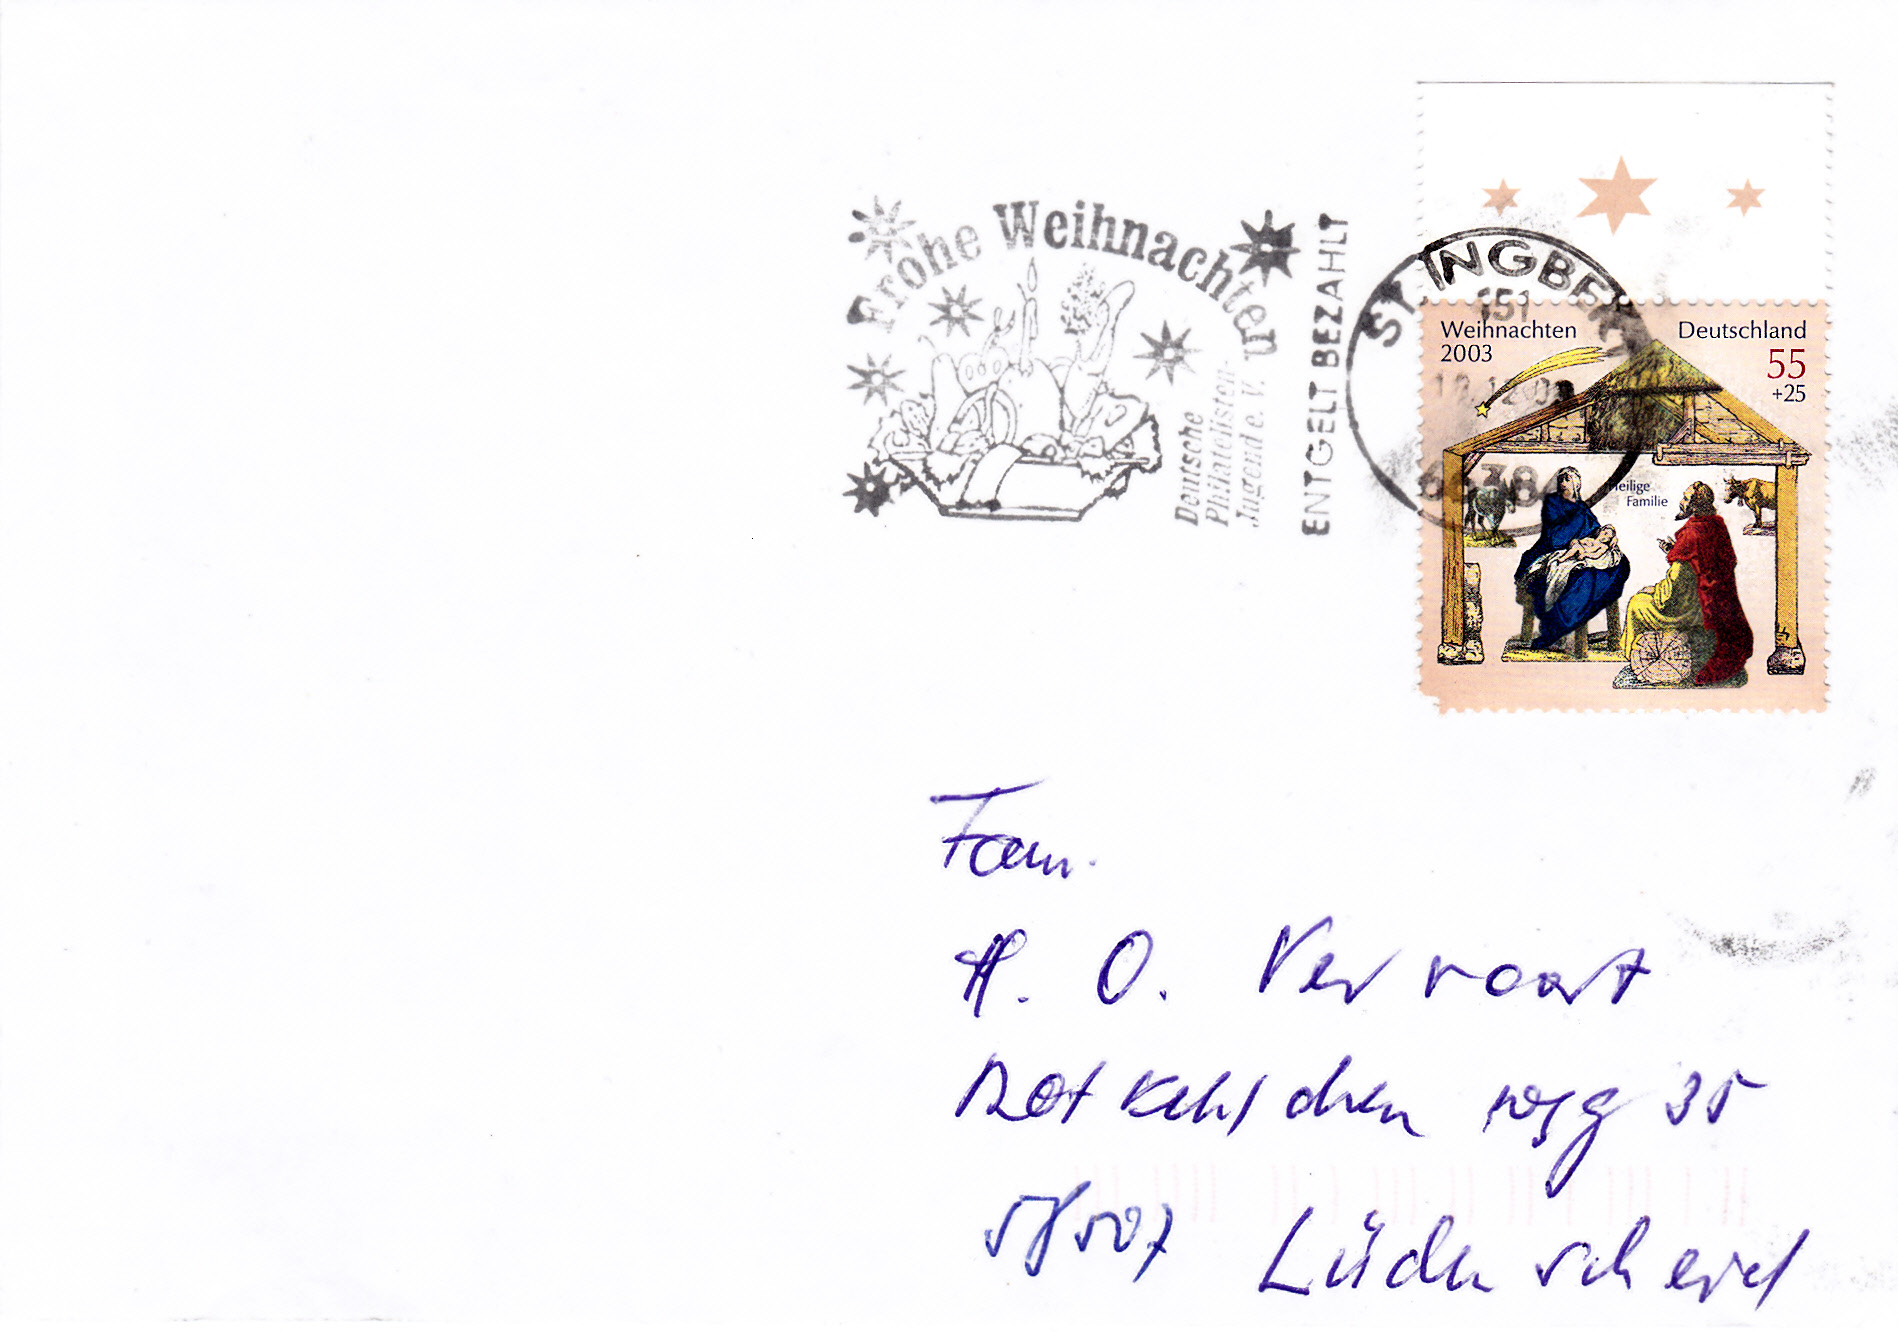 Frohe Weihnachten
Deutsche
Philatelisten-
Jugend e. V.
ENTGELT BEZAHLT
ST. INGBERT
151
66386
Weihnachten
2003
Deutschland
55
+25
Heilige
Familie
Fam.
H. O. Vervoort
Rotkehlchenweg 35
58507 Lüdenscheid